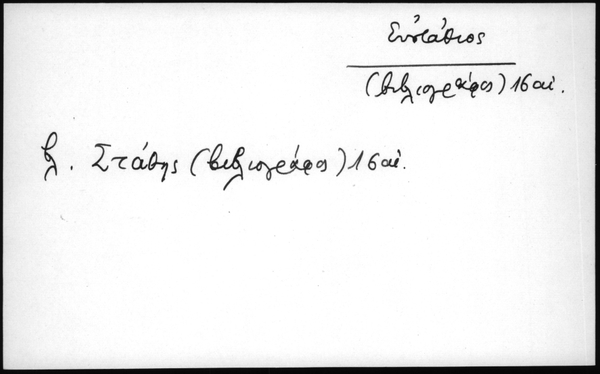 Εὐστάθιος
(βιβλιογράφος) 16 αἰ.
βλ. Στάθης (βιβλιογράφος) 16 αἰ.